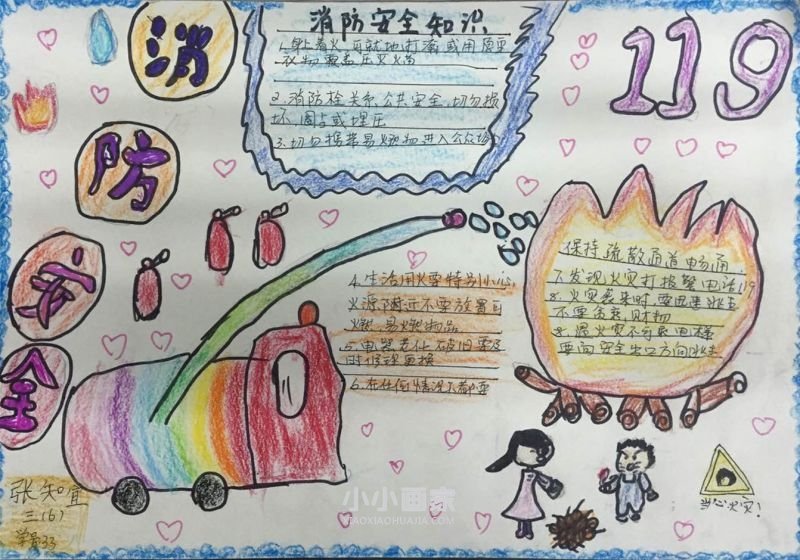 消防安全知识
1.身上着火,可就地打滚或用厚重
衣物覆盖压灭火苗
2.消防栓关系公共安全,切勿损
坏、圈占或埋压
3.切勿携带易燃物进入公众场
119
消
防
安
全
4.生活用火要特别小心,
火源附近不要放置可
燃、易燃物品
5.电器老化 破旧要及
时修理更换
6.在任何情况下都要
保持疏散通道畅通
7.发现火灾打报警电话119
8.火灾袭来时要迅速逃生
不要贪恋财物
要向安全出口方向逃生
张知宜
三(6)
学号33
当心火灾!
小小画家
XIAOXIAOHUAJIA.COM